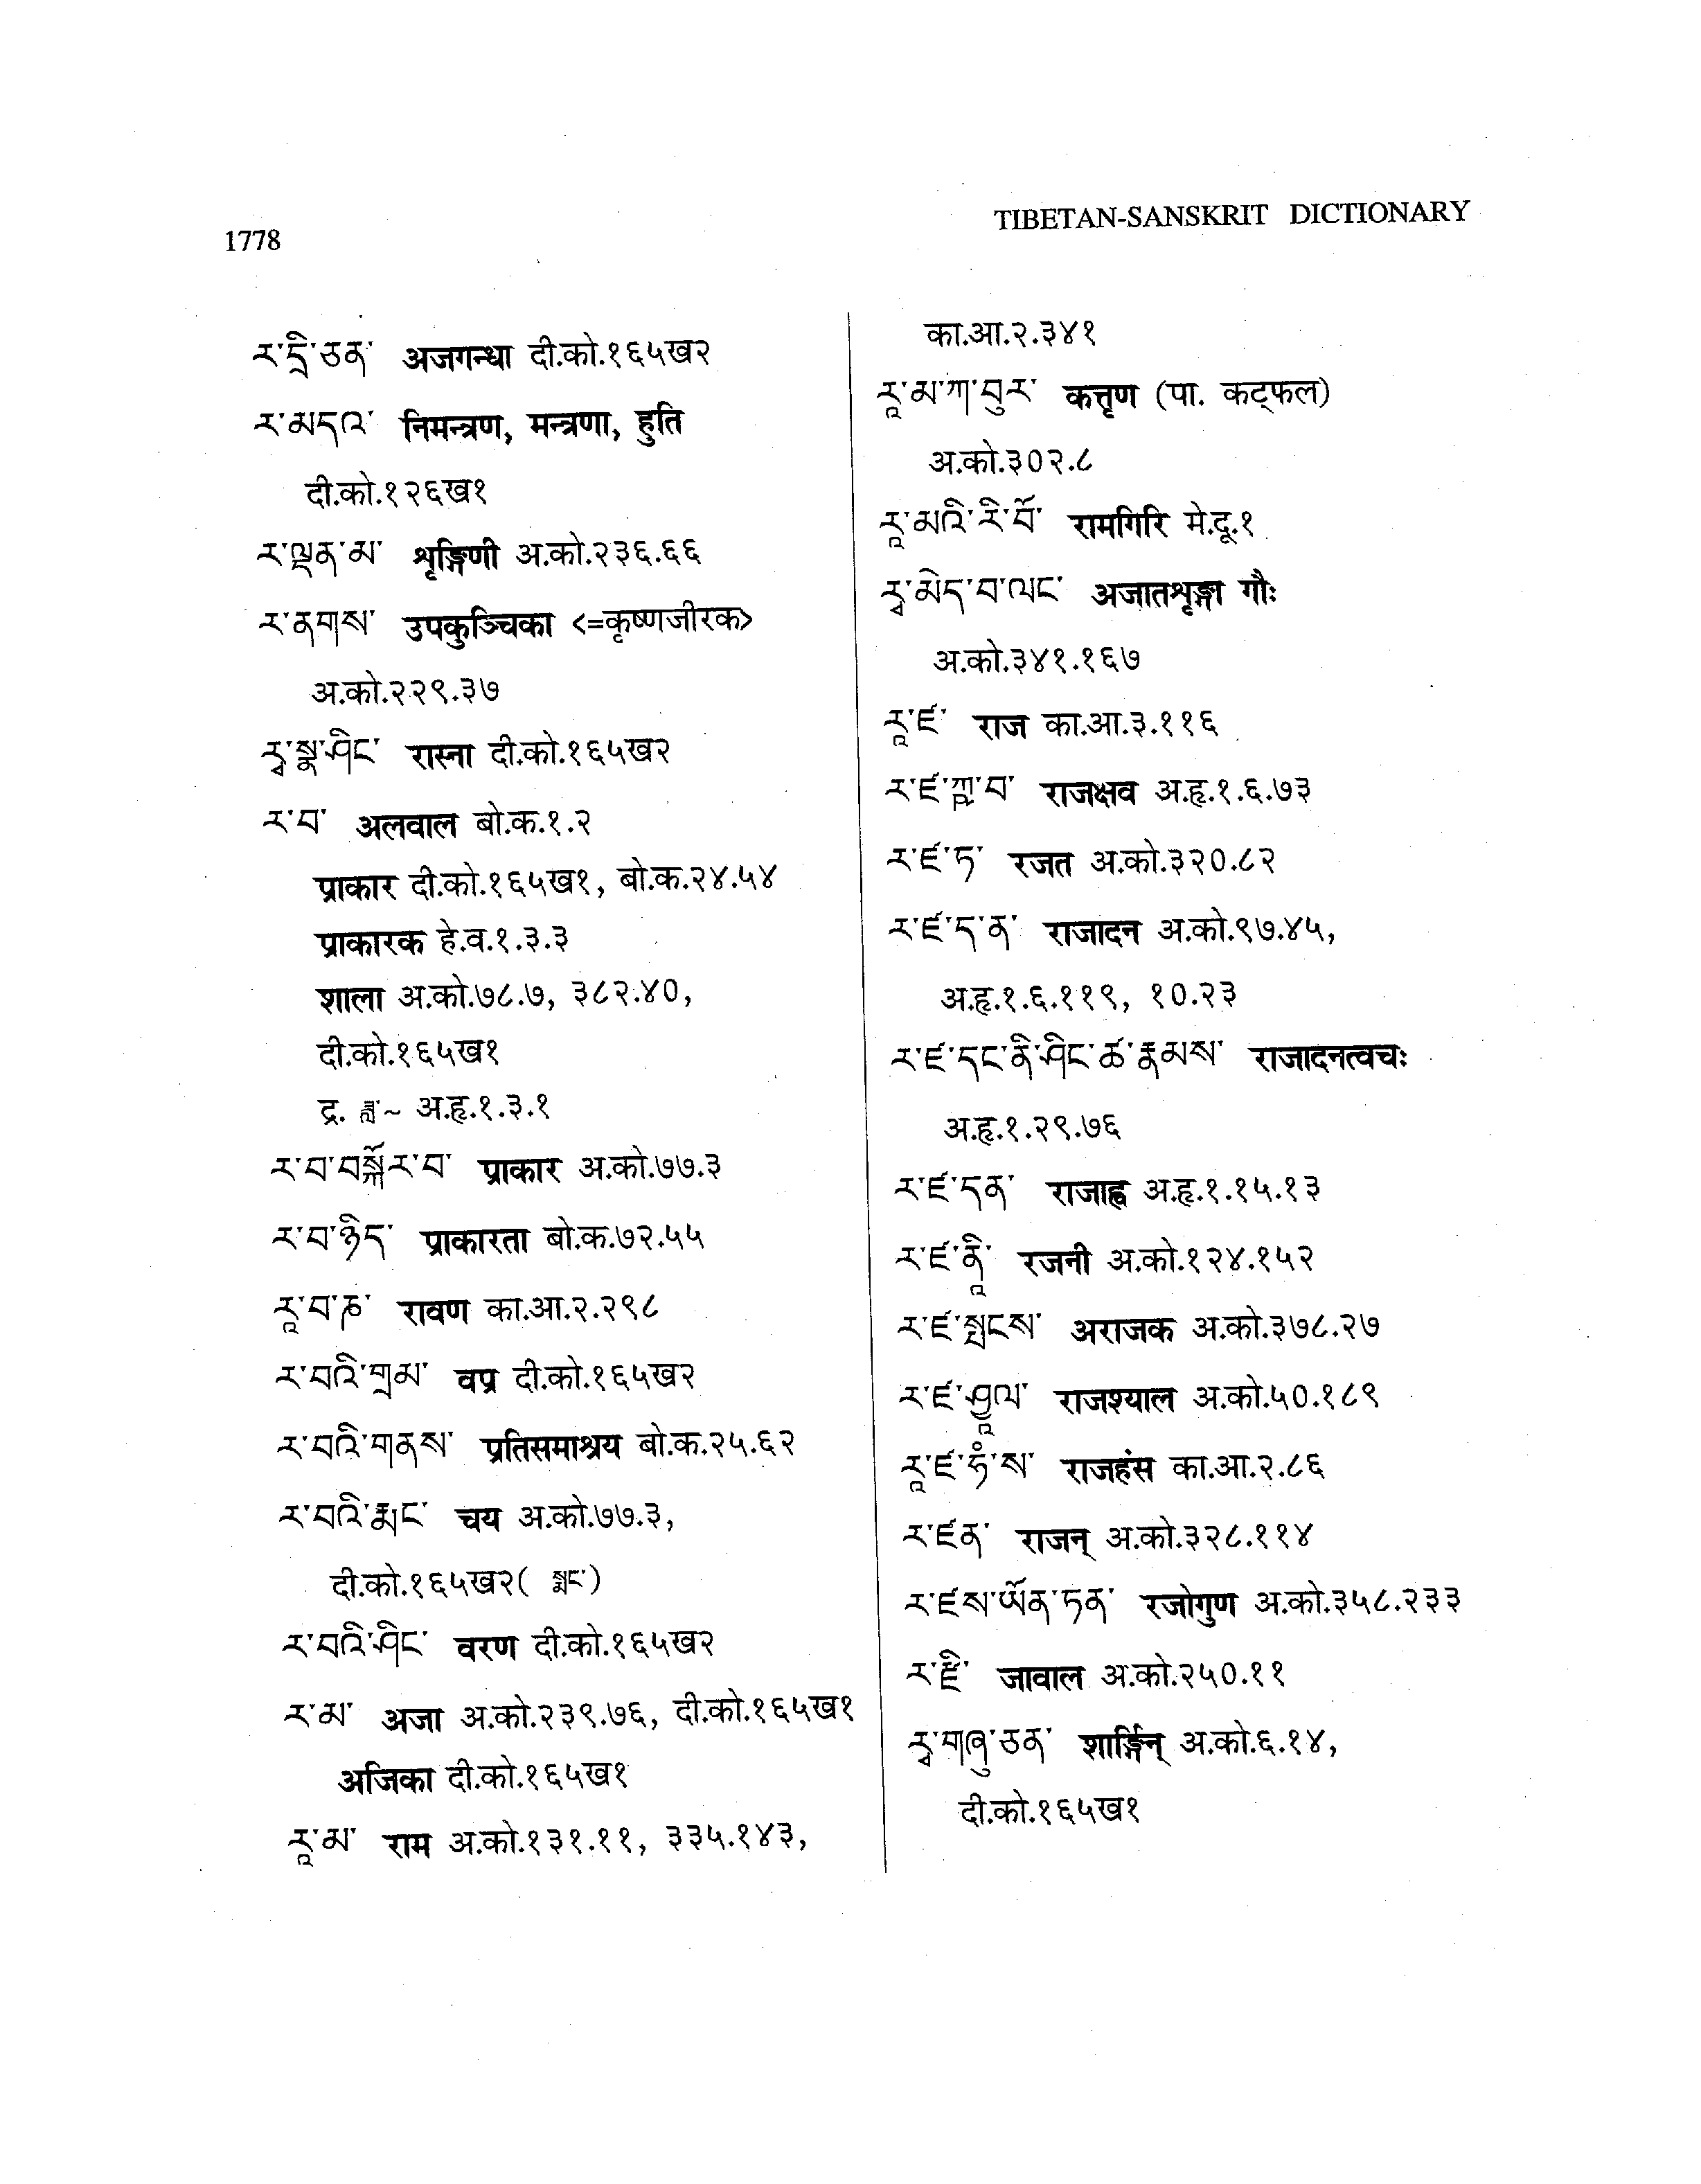 1778
TIBETAN-SANSKRIT DICTIONARY
ར་དྲི་ཅན་ अजगन्धा दी.को.१६५ख२
ར་མདའ་ निमन्त्रण, मन्त्रणा, हुति
दी.को.१२६ख१
ར་ལྡན་མ་ शृङ्गिणी अ.को.२३६.६६
ར་ནགས་ उपकुञ्चिका <=कृष्णजीरक>
अ.को.२२९.३७
རྭ་སྣ་ཤིང་ रास्ना दी.को.१६५ख२
ར་བ་ अलवाल बो.क.१.२
प्राकार दी.को.१६५ख१, बो.क.२४.५४
प्राकारक हे.व.१.३.३
शाला अ.को.७८.७, ३८२.४०,
दी.को.१६५ख१
द्र. ~ अ.हृ.१.३.१
ར་བ་བསྐོར་བ་ प्राकार अ.को.७७.३
ར་བ་ཉིད་ प्राकारता बो.क.७२.५५
རཱ་བ་ཎ་ रावण का.आ.२.२९८
ར་བའི་གྲམ་ वप्र दी.को.१६५ख२
ར་བའི་གནས་ प्रतिसमाश्रय बो.क.२५.६२
ར་བའི་རྨང་ चय अ.को.७७.३,
दी.को.१६५ख२( སྨང་)
ར་བའི་ཤིང་ वरण दी.को.१६५ख२
ར་མ་ अजा अ.को.२३९.७६, दी.को.१६५ख१
अजिका दी.को.१६५ख१
རཱ་མ་ राम अ.को.१३१.११, ३३५.१४३,
का.आ.२.३४१
རཱ་མ་ཀ་བུར་ कत्तृण (पा. कट्फल)
अ.को.३०२.८
རཱ་མའི་རི་བོ་ रामगिरि मे.दू.१
རྭ་མེད་བ་ལང་ अजातशृङ्गा गौः
अ.को.३४१.१६७
རཱ་ཛ་ राज का.आ.३.११६
ར་ཛ་ཀྵ་བ་ राजक्षव अ.हृ.१.६.७३
ར་ཛ་ཏ་ रजत अ.को.३२०.८२
ར་ཛ་ད་ན་ राजादन अ.को.९७.४५,
अ.हृ.१.६.११९, १०.२३
ར་ཛ་དང་ནི་ཤིང་ཚ་རྣམས་ राजादनत्वचः
अ.हृ.१.२९.७६
ར་ཛ་དན་ राजाह्व अ.हृ.१.१५.१३
ར་ཛ་ནཱི་ रजनी अ.को.१२४.१५२
ར་ཛ་སྤངས་ अराजक अ.को.३७८.२७
ར་ཛ་ཤྱཱལ་ राजश्याल अ.को.५०.१८९
རཱ་ཛ་ཧཾ་ས་ राजहंस का.आ.२.८६
ར་ཛན་ राजन् अ.को.३२८.११४
ར་ཛས་ཡོན་ཏན་ रजोगुण अ.को.३५८.२३३
ར་རྫི་ जावाल अ.को.२५०.११
རྭ་གཞུ་ཅན་ शार्ङ्गिन् अ.को.६.१४,
दी.को.१६५ख१